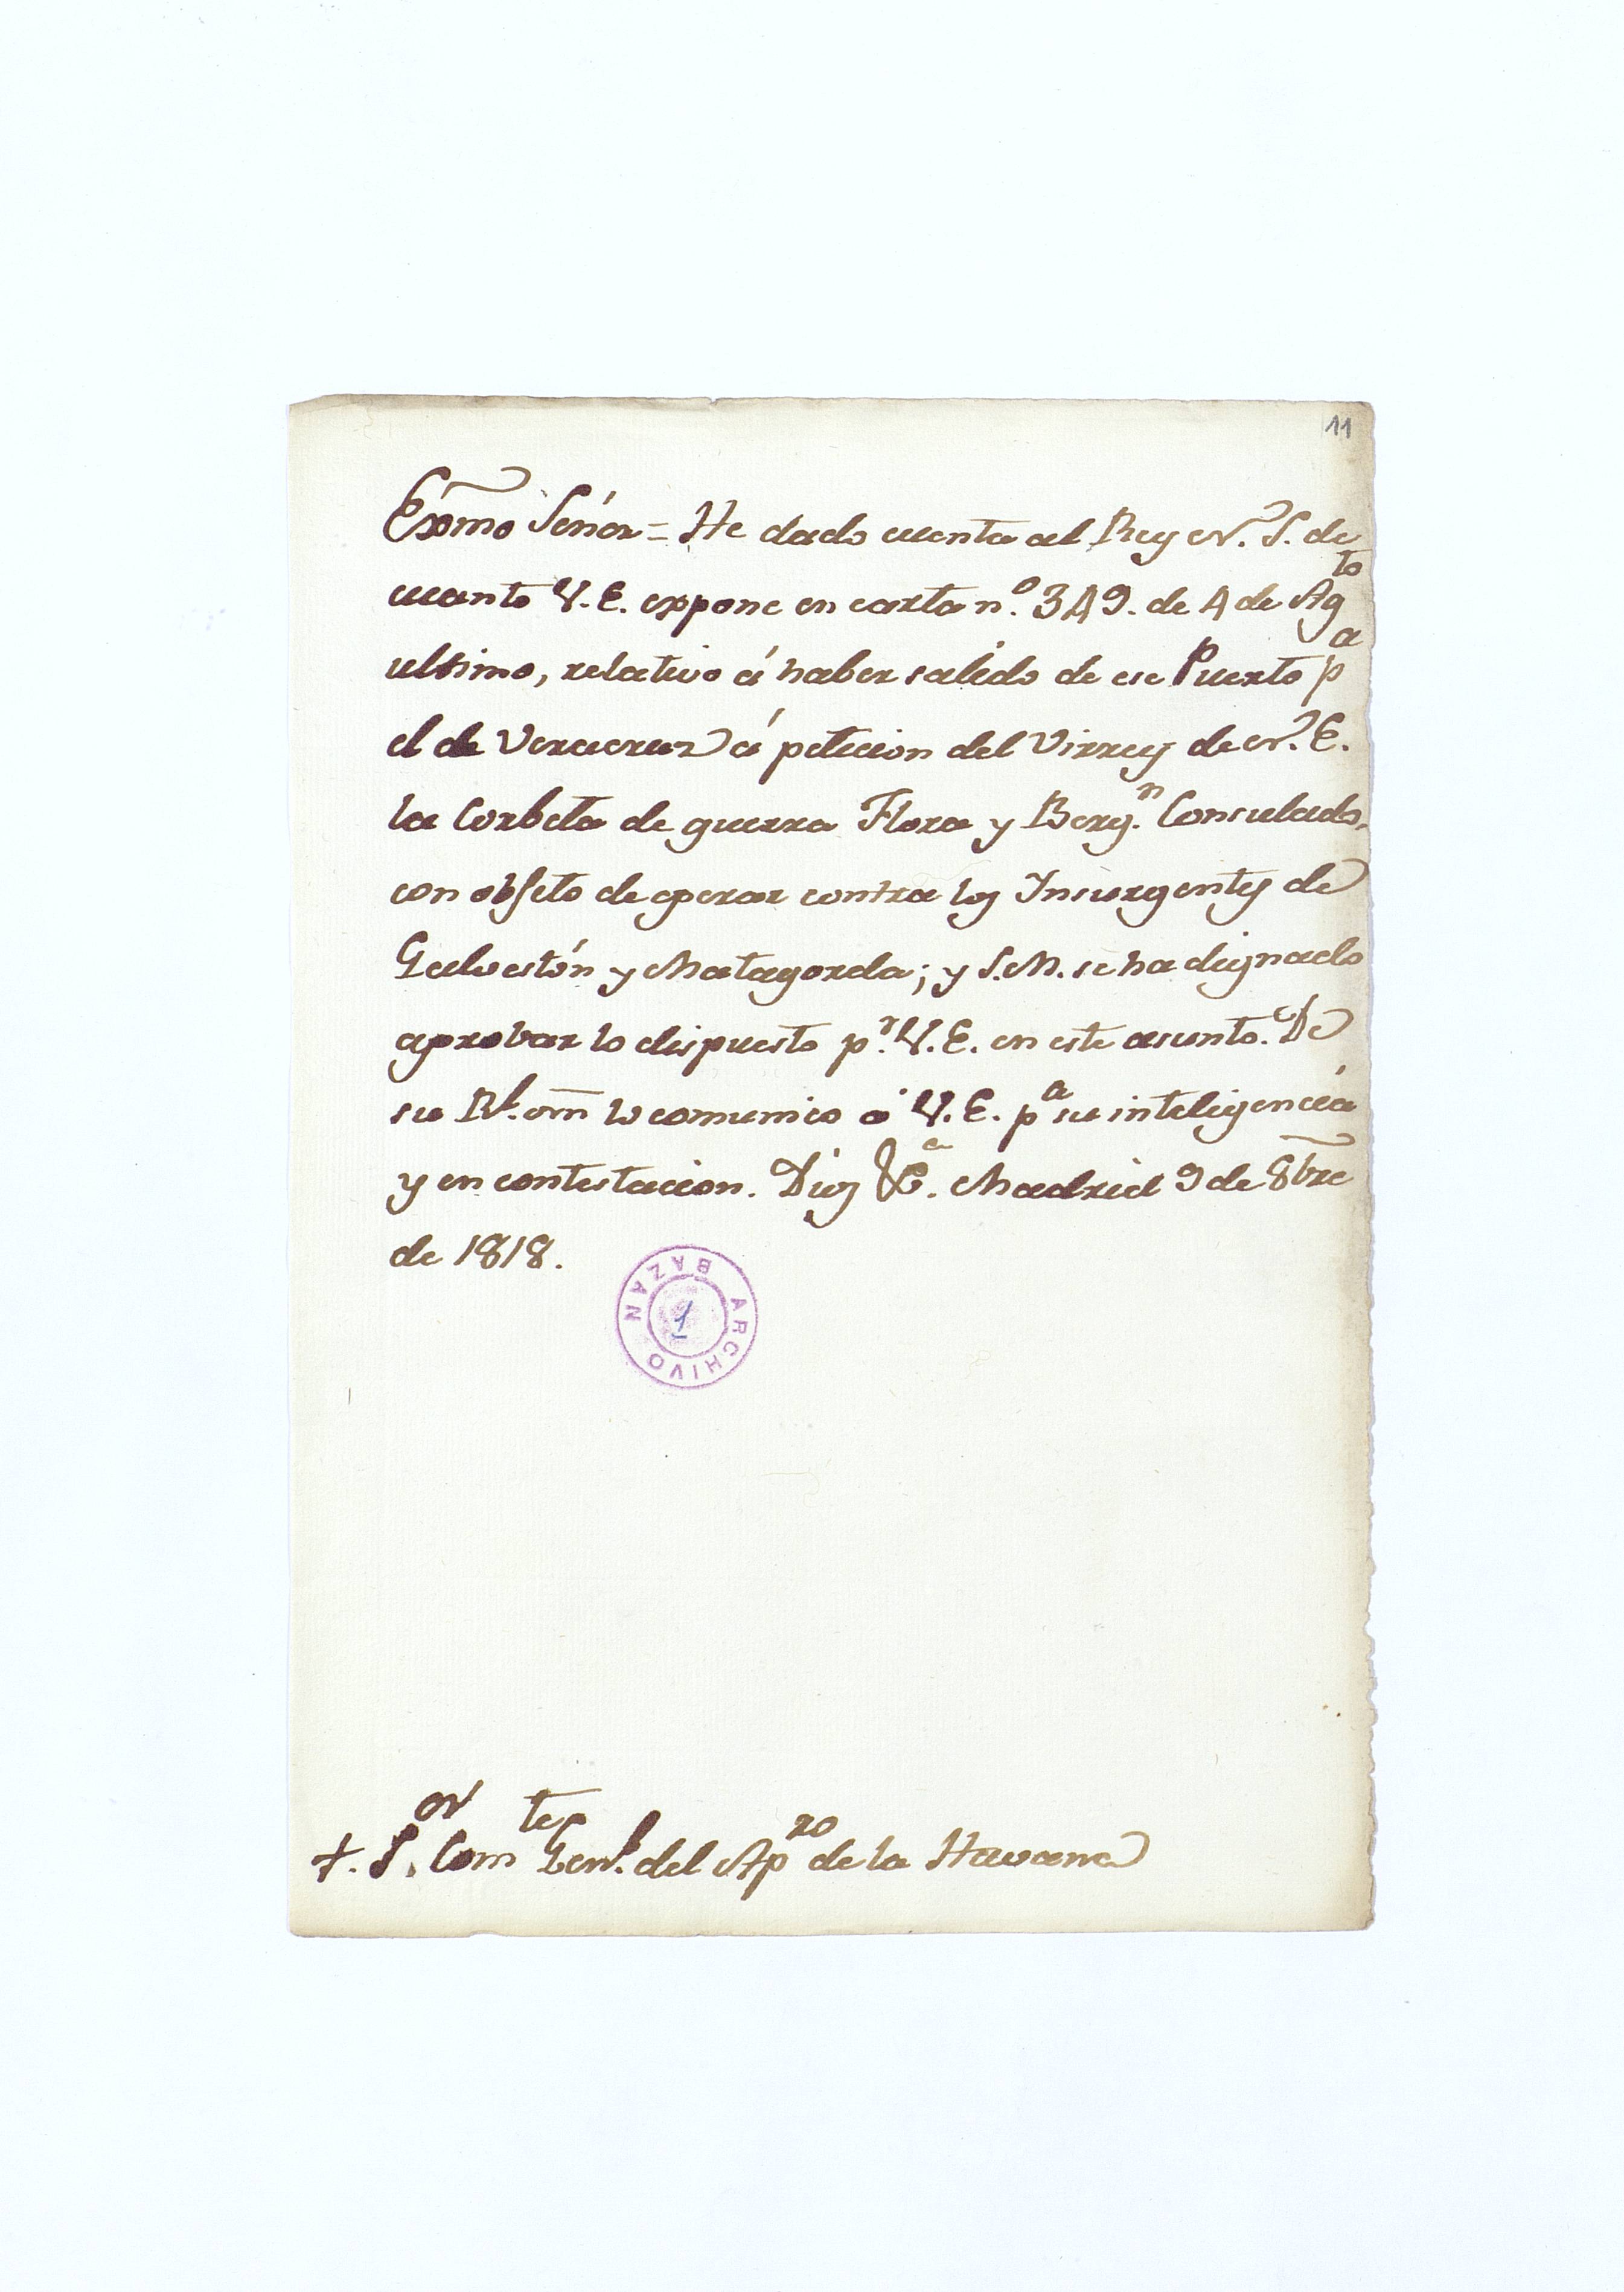 11
Exmo Señor = He dado cuenta al Rey N. S. de
cuanto V. E. expone en carta n.º 349. de 4 de Agto
ultimo, relativo á haber salido de ese Puerto pa
el de Veracruz á peticion del Virrey de N. E.
la Corbeta de guerra Flora y Berg.n Consulado,
con objeto de operar contra los Insurgentes de
Galvestón y Matagorda; y S. M. se ha dignado
aprobar lo dispuesto p.r V. E. en este asunto. De
su Rl. orn lo comunico á V. E. pa su inteligencia
y en contestacion. Dios &a. Madrid 9 de 8bre
de 1818.
ARCHIVO BAZAN
1
+. Sor. Comte Genl. del Apro de la Havana